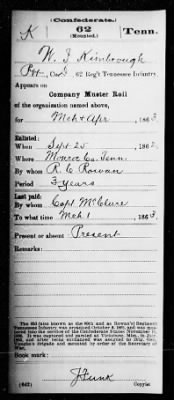 (Confederate.)
K 62 Tenn.
(Mounted.)
W. J. Kimbrough
Pvt, Co. 62 Reg't Tennessee Infantry.
Appears on
Company Muster Roll
of the organization named above,
for Mch & Apr, 1863
Enlisted:
When Sept 25, 1862
Where Monroe Co. Tenn.
By whom R. C. Rowan
Period 3 years
Last paid:
By whom Capt McClure
To what time Mch 1, 1863
Present or absent Present
Remarks:
Book mark:
J. Funk
(642) Copyist